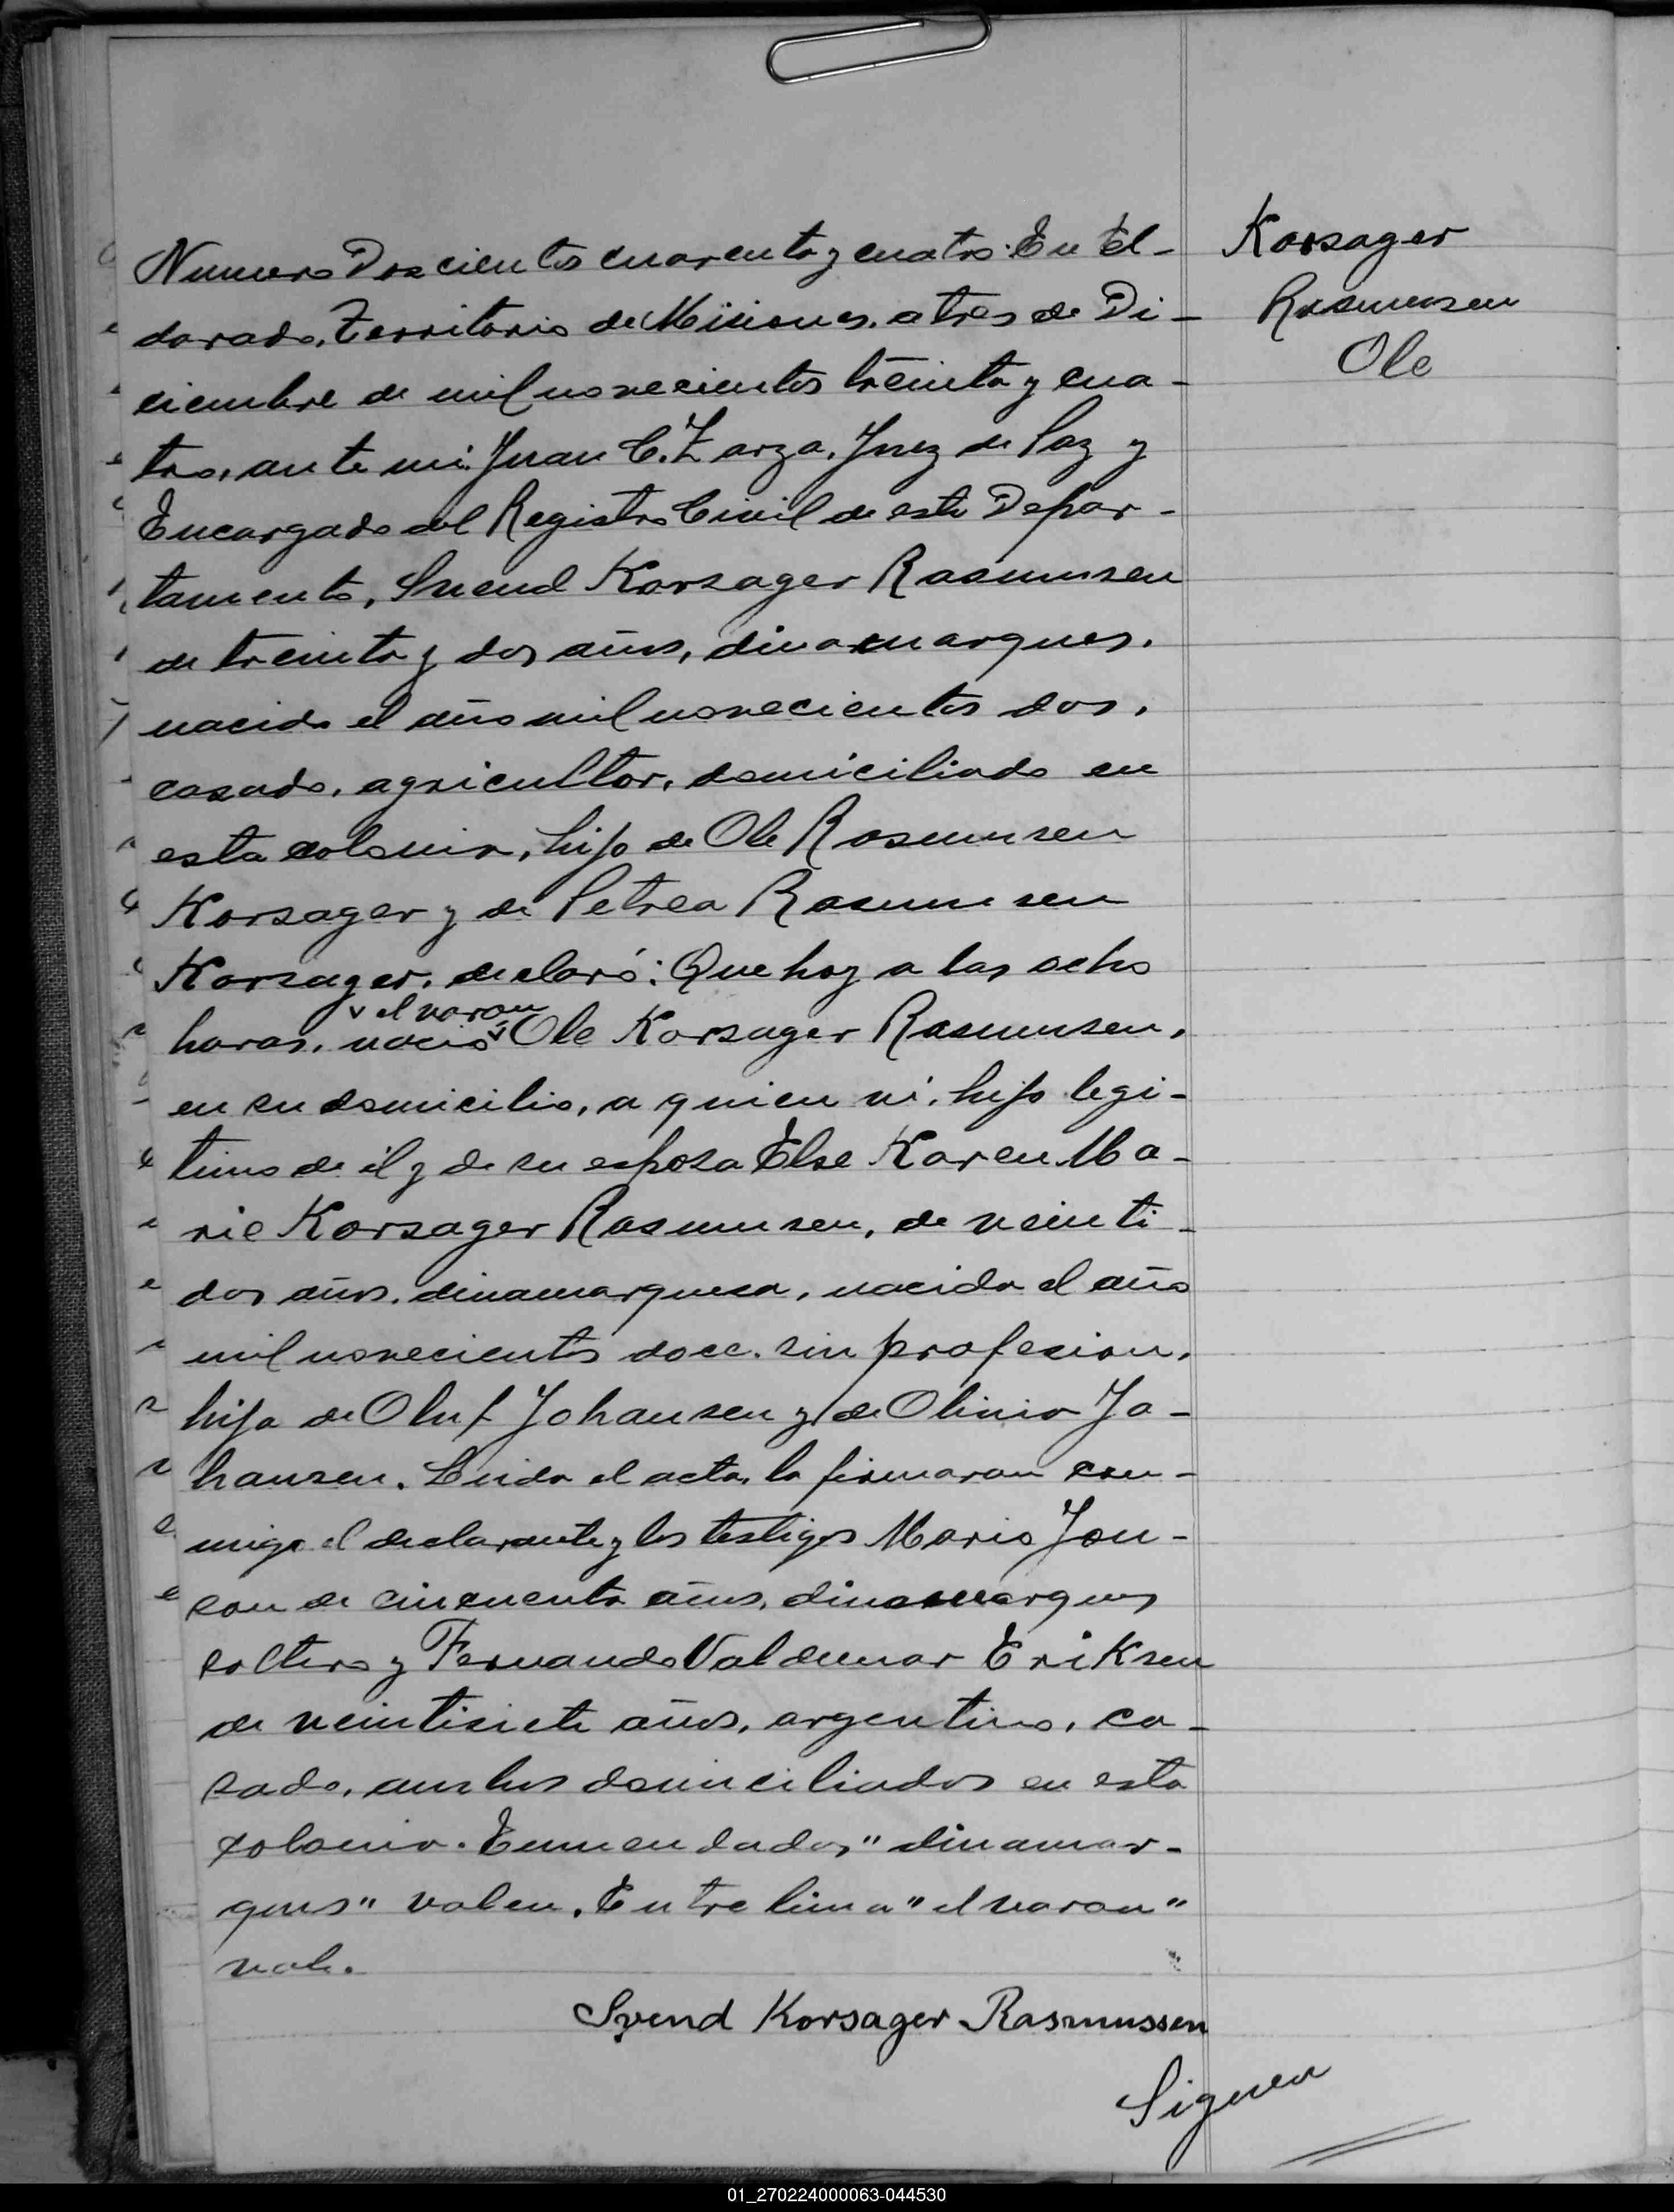 Numero Doscientos cuarenta y cuatro: En El-
dorado, Territorio de Misiones, a tres de Di-
ciembre de mil novecientos treinta y cua-
tro, ante mi: Juan C. Zarza, Juez de Paz y
Encargado del Registro Civil de este Depar-
tamento, Svend Korsager Rasmusen
de treinta y dos años, dinamarques,
nacido el año mil novecientos dos,
casado, agricultor, domiciliado en
esta colonia, hijo de Ole Rasmusen
Korsager y de Petrea Rasmusen
Korsager, declaró: Que hoy a las ocho
el varon
horas, nació Ole Korsager Rasmusen,
en su domicilio, a quien vi, hijo legi-
timo de él y de su esposa Else Karen Ma-
rie Korsager Rasmusen, de veinti-
dos años, dinamarquesa, nacida el año
mil novecientos doce, sin profesion,
hija de Oluf Johansen y de Olinia Jo-
hansen. Leida el acta, la firmaran con-
migo el declarante y los testigos Mario Jon-
son de cincuenta años, dinamarques
soltero y Fernando Valdemar Eriksen
de veintisiete años, argentino, ca-
sado, ambos domiciliados en esta
colonia. Enmendados "dinamar-
ques" valen. Entre linea "el varon"
vale.
Svend Korsager Rasmussen
Siguen
Korsager
Rasmusen
Ole
01_270224000063-044530